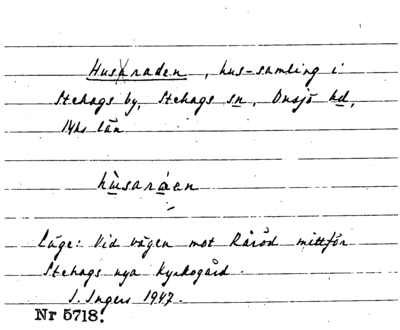 Husaraden, hus-samling i
Stehags by, Stehags sn, Onsjö hd,
Mhs län
hùsaráen
Läge: Vid vägen mot Råröd mittför
Stehags nya kyrkogård.
I. Ingers 1947.
Nr 5718.